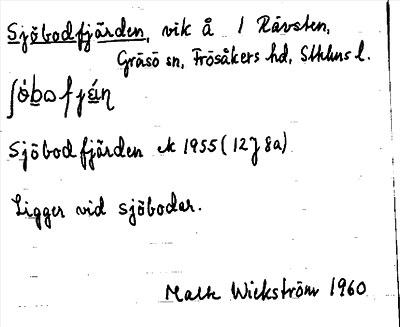 Sjöbodfjärden, vik å 1 Rävsten,
Gräsö sn, Frösåkers hd, Sthlms l.
Sjöbodfjärden ek 1955 (12J 8a)
Ligger vid sjöbodar.
Wickström 1960